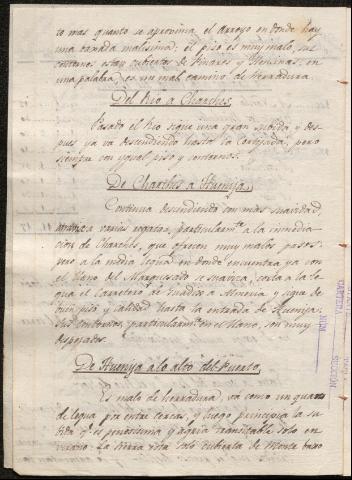 to mas quanto se aproxima el Arroyo en donde hay
una baxada malisima: el piso es muy malo, sus
contornos estan cubiertos de Pinares y Henzinas, en
una palabra, es un mal camino de herradura.
Del Rio a Charches.
Pasado el Rio sigue una gran subida y des-
pues ya va descendiendo hasta la Cortijada, pero
siempre con ygual piso y contornos.
De Charches a Hueneja.
Continua descendiendo con mas suavidad,
a varios regatos, particularmte. a la inmedia-
cion de Charches, que ofrecen muy malos pasos:
pero a la media legua en donde encuentra ya con
el llano del Marquesado se suaviza, corta a la le-
gua el Carretero de Guadix a Almeria y sigue de
buen piso y calidad hasta la entrada de Hueneja:
Sus contornos, particularmte. en el llano, son muy
despejados.
De Hueneja a lo alto del Puerto.
Es malo de herradura, va como un quarto
de legua por entre cercas, y luego principia la su-
bida qe. es penosisima y agria transitable solo en
verano: La tierra esta solo cubierta de Monte baxo
NUM
CARTERA
SECCION